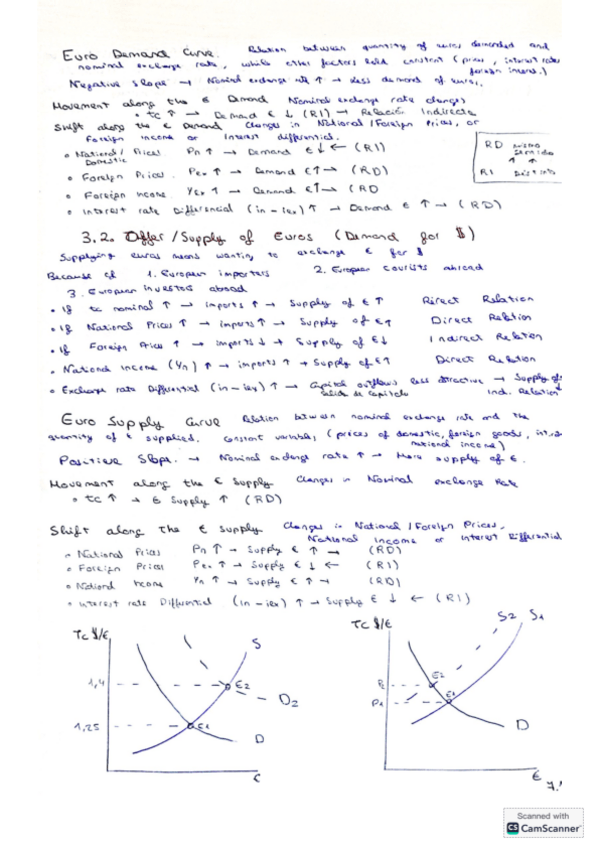 Euro Demand Curve. Relation between quantity of euros demanded and
nominal exchange rate, while other factors held constant (prices, interest rates
foreign income.)
Negative slope → Nominal exchange rate ↑ → Less demand of euros.
Movement along the € Demand Nominal exchange rate changes
• TC ↑ → Demand € ↓ (RI) → Relación Indirecta
Shift along the € Demand Changes in National/Foreign Prices, or
Foreign income or Interest differential.
• National/Domestic Prices Pn ↑ → Demand € ↓ ← (RI)
• Foreign Prices Pex ↑ → Demand € ↑ → (RD)
• Foreign Income Yex ↑ → Demand € ↑ → (RD
• Interest rate Differencial (in - iex) ↑ → Demand € ↑ → (RD)
RD mismo sentido
↑ ↑
RI distinto
3.2. Offer/Supply of Euros (Demand for $)
Supplying euros means wanting to exchange € for $
Because of 1. European importers 2. European tourists abroad
3. European investors abroad
• If tc nominal ↑ → imports ↑ → Supply of € ↑ Direct Relation
• If National Prices ↑ → imports ↑ → Supply of € ↑ Direct Relation
• If Foreign Prices ↑ → imports ↓ → Supply of € ↓ Indirect Relation
• National income (Yn) ↑ → imports ↑ → Supply of € ↑ Direct Relation
• Exchange rate Differential (in - iex) ↑ → Capital outflows less attractive → Supply of
salida de capitales Ind. Relation
Euro Supply Curve Relation between nominal exchange rate and the
quantity of € supplied. Constant variables (prices of domestic, foreign goods, int,
national income)
Positive Slope. → Nominal exchange rate ↑ → More supply of €.
Movement along the € Supply Changes in Nominal exchange Rate
• TC ↑ → € Supply ↑ (RD)
Shift along the € supply Changes in National/Foreign Prices,
National Income or Interest Differential
• National Prices Pn ↑ → Supply € ↑ → (RD)
• Foreign Prices Pex ↑ → Supply € ↓ ← (RI)
• National Income Yn ↑ → Supply € ↑ → (RD)
• Interest rate Differential (in - iex) ↑ → Supply € ↓ ← (RI)
TC $/€
S
1,4
E2
D2
1,25
E1
D
€
TC $/€
S2 S1
P2
E2
P1
E1
D
€
Scanned with
CS CamScanner